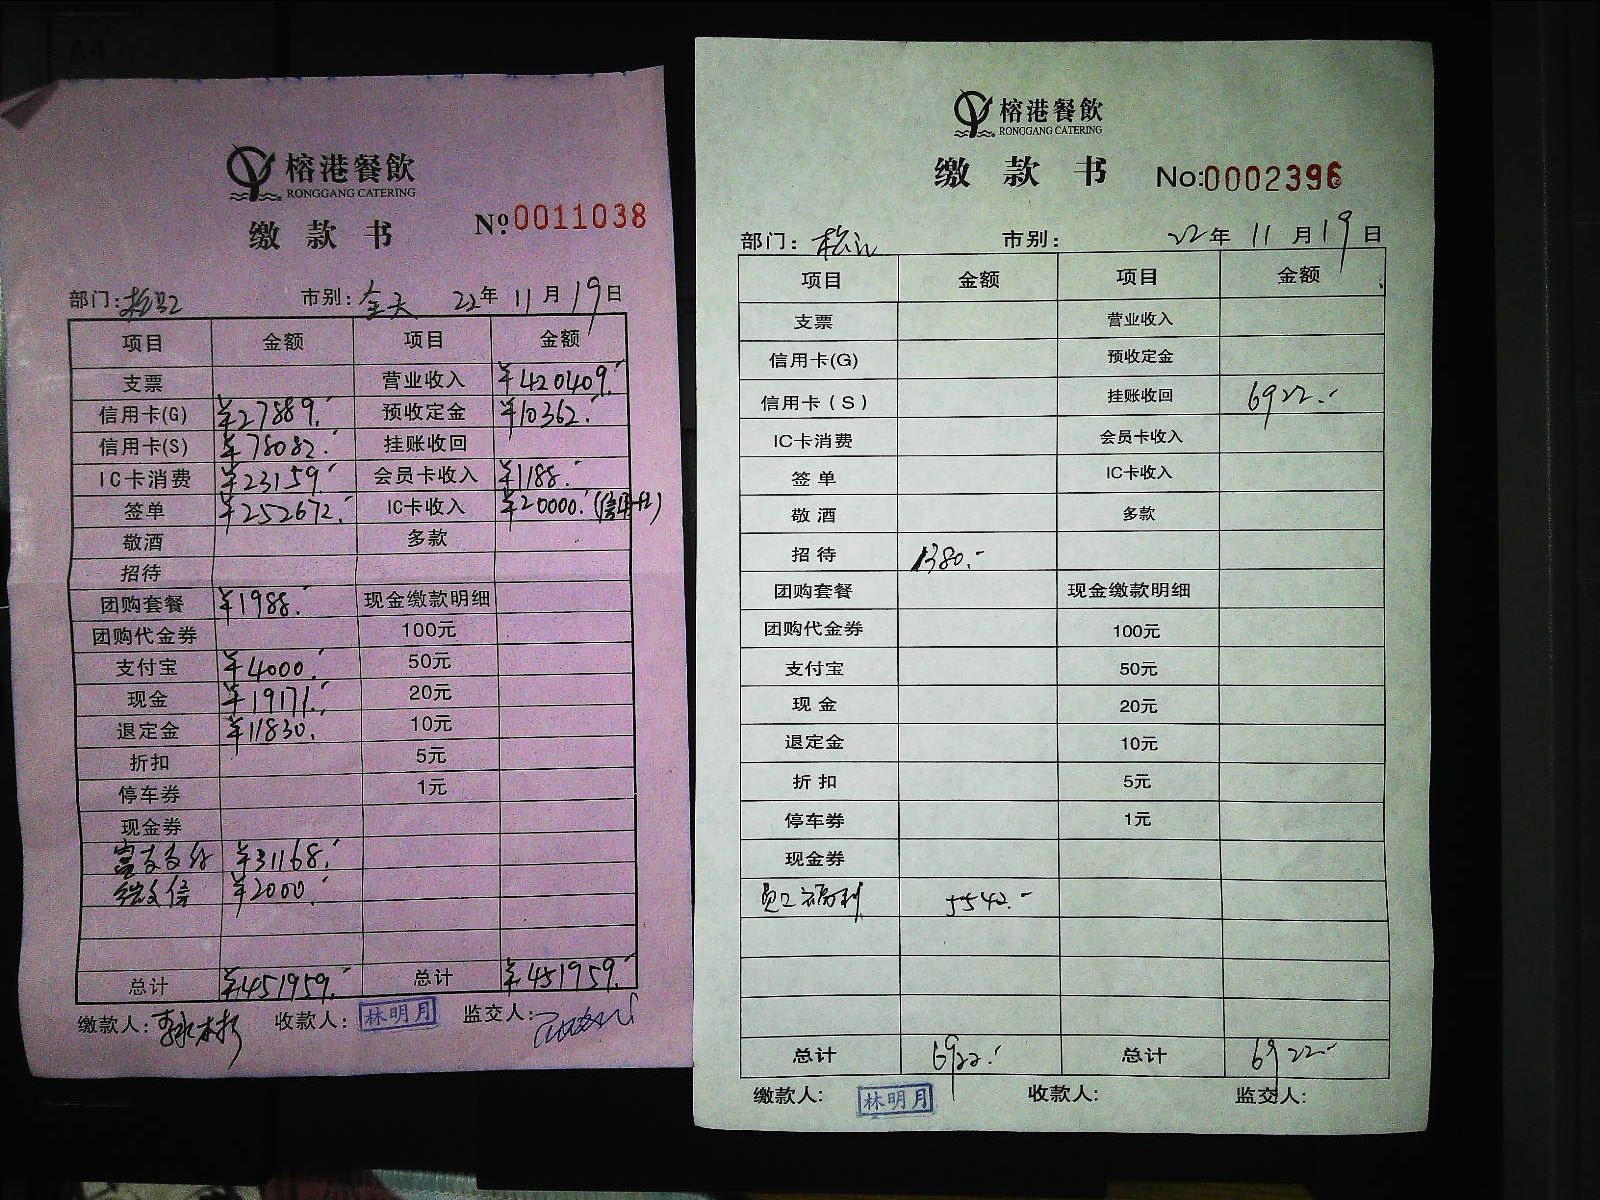 榕港餐飲
RONGGANG CATERING
缴款书
№:0011038
部门: 市别:全天 22年11月19日
项目 金额 项目 金额
支票 营业收入 ¥420409.-
信用卡(G) ¥27889.- 预收定金 ¥10362.-
信用卡(S) ¥78082.- 挂账收回
IC卡消费 ¥23159.- 会员卡收入 ¥1188.-
签单 ¥252672.- IC卡收入 ¥20000.-(信用卡)
敬酒 多款
招待
团购套餐 ¥1988.- 现金缴款明细
团购代金券 100元
支付宝 ¥4000.- 50元
现金 ¥19171.- 20元
退定金 ¥11830.- 10元
折扣 5元
停车券 1元
现金券
¥31168.-
¥2000.-
总计 ¥451959.- 总计 ¥451959.-
缴款人: 收款人:林明月 监交人:
榕港餐飲
RONGGANG CATERING
缴款书
No:0002396
部门:松江 市别: 22年11月19日
项目 金额 项目 金额
支票 营业收入
信用卡(G) 预收定金
信用卡(S) 挂账收回 6922.-
IC卡消费 会员卡收入
签单 IC卡收入
敬酒 多款
招待 1380.-
团购套餐 现金缴款明细
团购代金券 100元
支付宝 50元
现金 20元
退定金 10元
折扣 5元
停车券 1元
现金券
员工福利 5542.-
总计 6922.- 总计 6922.-
缴款人:林明月 收款人: 监交人: